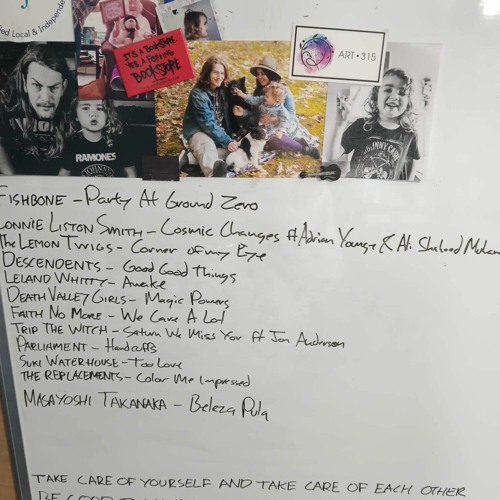 ed Local & Independe
IT'S A BOOKSTORE
BOOKSTORE
ART • 315
RAMONES
JOHNNY CASH
FISHBONE - Party At Ground Zero
ONNIE LISTON SMITH - Cosmic Changes ft Adrian Younge & Ali Shaheed Muham
THE LEMON TWIGS - Corner of my Eye
DESCENDENTS - Good Good Things
LELAND WHITTY - Awake
DEATH VALLEY GIRLS - Magic Powers
FAITH NO MORE - We Care A Lot
TRIP THE WITCH - Saturn We Miss You ft Jon Anderson
PARLIAMENT - Handcuffs
SUKI WATERHOUSE - To Love
THE REPLACEMENTS - Color Me Impressed
MASAYOSHI TAKANAKA - Beleza Pula
TAKE CARE OF YOURSELF AND TAKE CARE OF EACH OTHER
BE GOOD